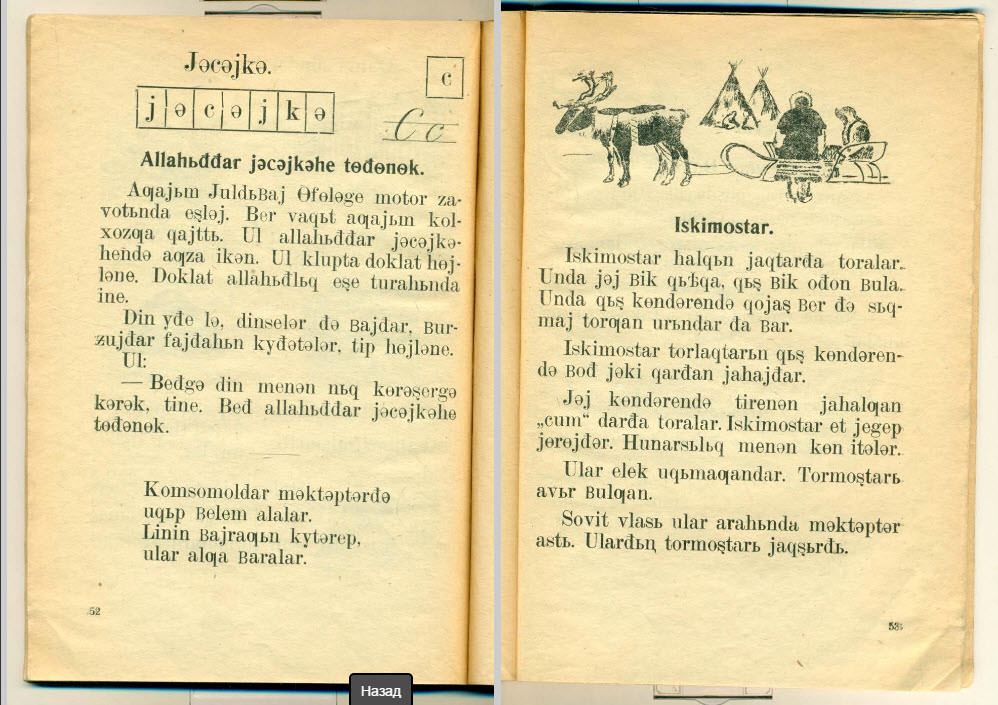 Jəcəjkə.
c
j ə c ə j k ə
C c
Allahьđđar jəcəjkəhe tөđөnөk.
Aƣajьm Juldьʙaj Өfөləge motor za-
votьnda eşləj. Ber vaqьt aƣajьm kol-
xozƣa qajttь. Ul allahьđđar jəcəjkə-
hendə aƣza ikən. Ul klupta doklat hөj-
ləne. Doklat allahьđlьq eşe turahьnda
ine.
Din yđe lə, dinselər də ʙajđar, ʙur-
zujđar fajđahьn kyđətələr, tip hөjləne.
Ul:
— Beđgə din menən nьq kөrəşergə
kərək, tine. Beđ allahьđđar jəcəjkəhe
tөđөnөk.
Komsomoldar məktəptərđə
uqьp ʙelem alalar.
Linin ʙajraƣьn kytərep,
ular alƣa ʙaralar.
52
Iskimostar.
Iskimostar halqьn jaqtarđa toralar.
Unda jəj ʙik qьѣqa, qьş ʙik ođon ʙula.
Unda qьş kөndərendə qojaş ʙer đə sьq-
maj torƣan urьndar đa ʙar.
Iskimostar torlaqtarьn qьş kөndəren-
də ʙođ jəki qarđan jahajđar.
Jəj kөndərendə tirenən jahalƣan
„cum“ darđa toralar. Iskimostar et jegep
jөrөjđər. Hunarsьlьq menən kөn itələr.
Ular elek uqьmaƣandar. Tormoştarь
avьr ʙulƣan.
Sovit vlasь ular arahьnda məktəptər
astь. Ularđьꞑ tormoştarь jaqşьrđь.
53
Назад